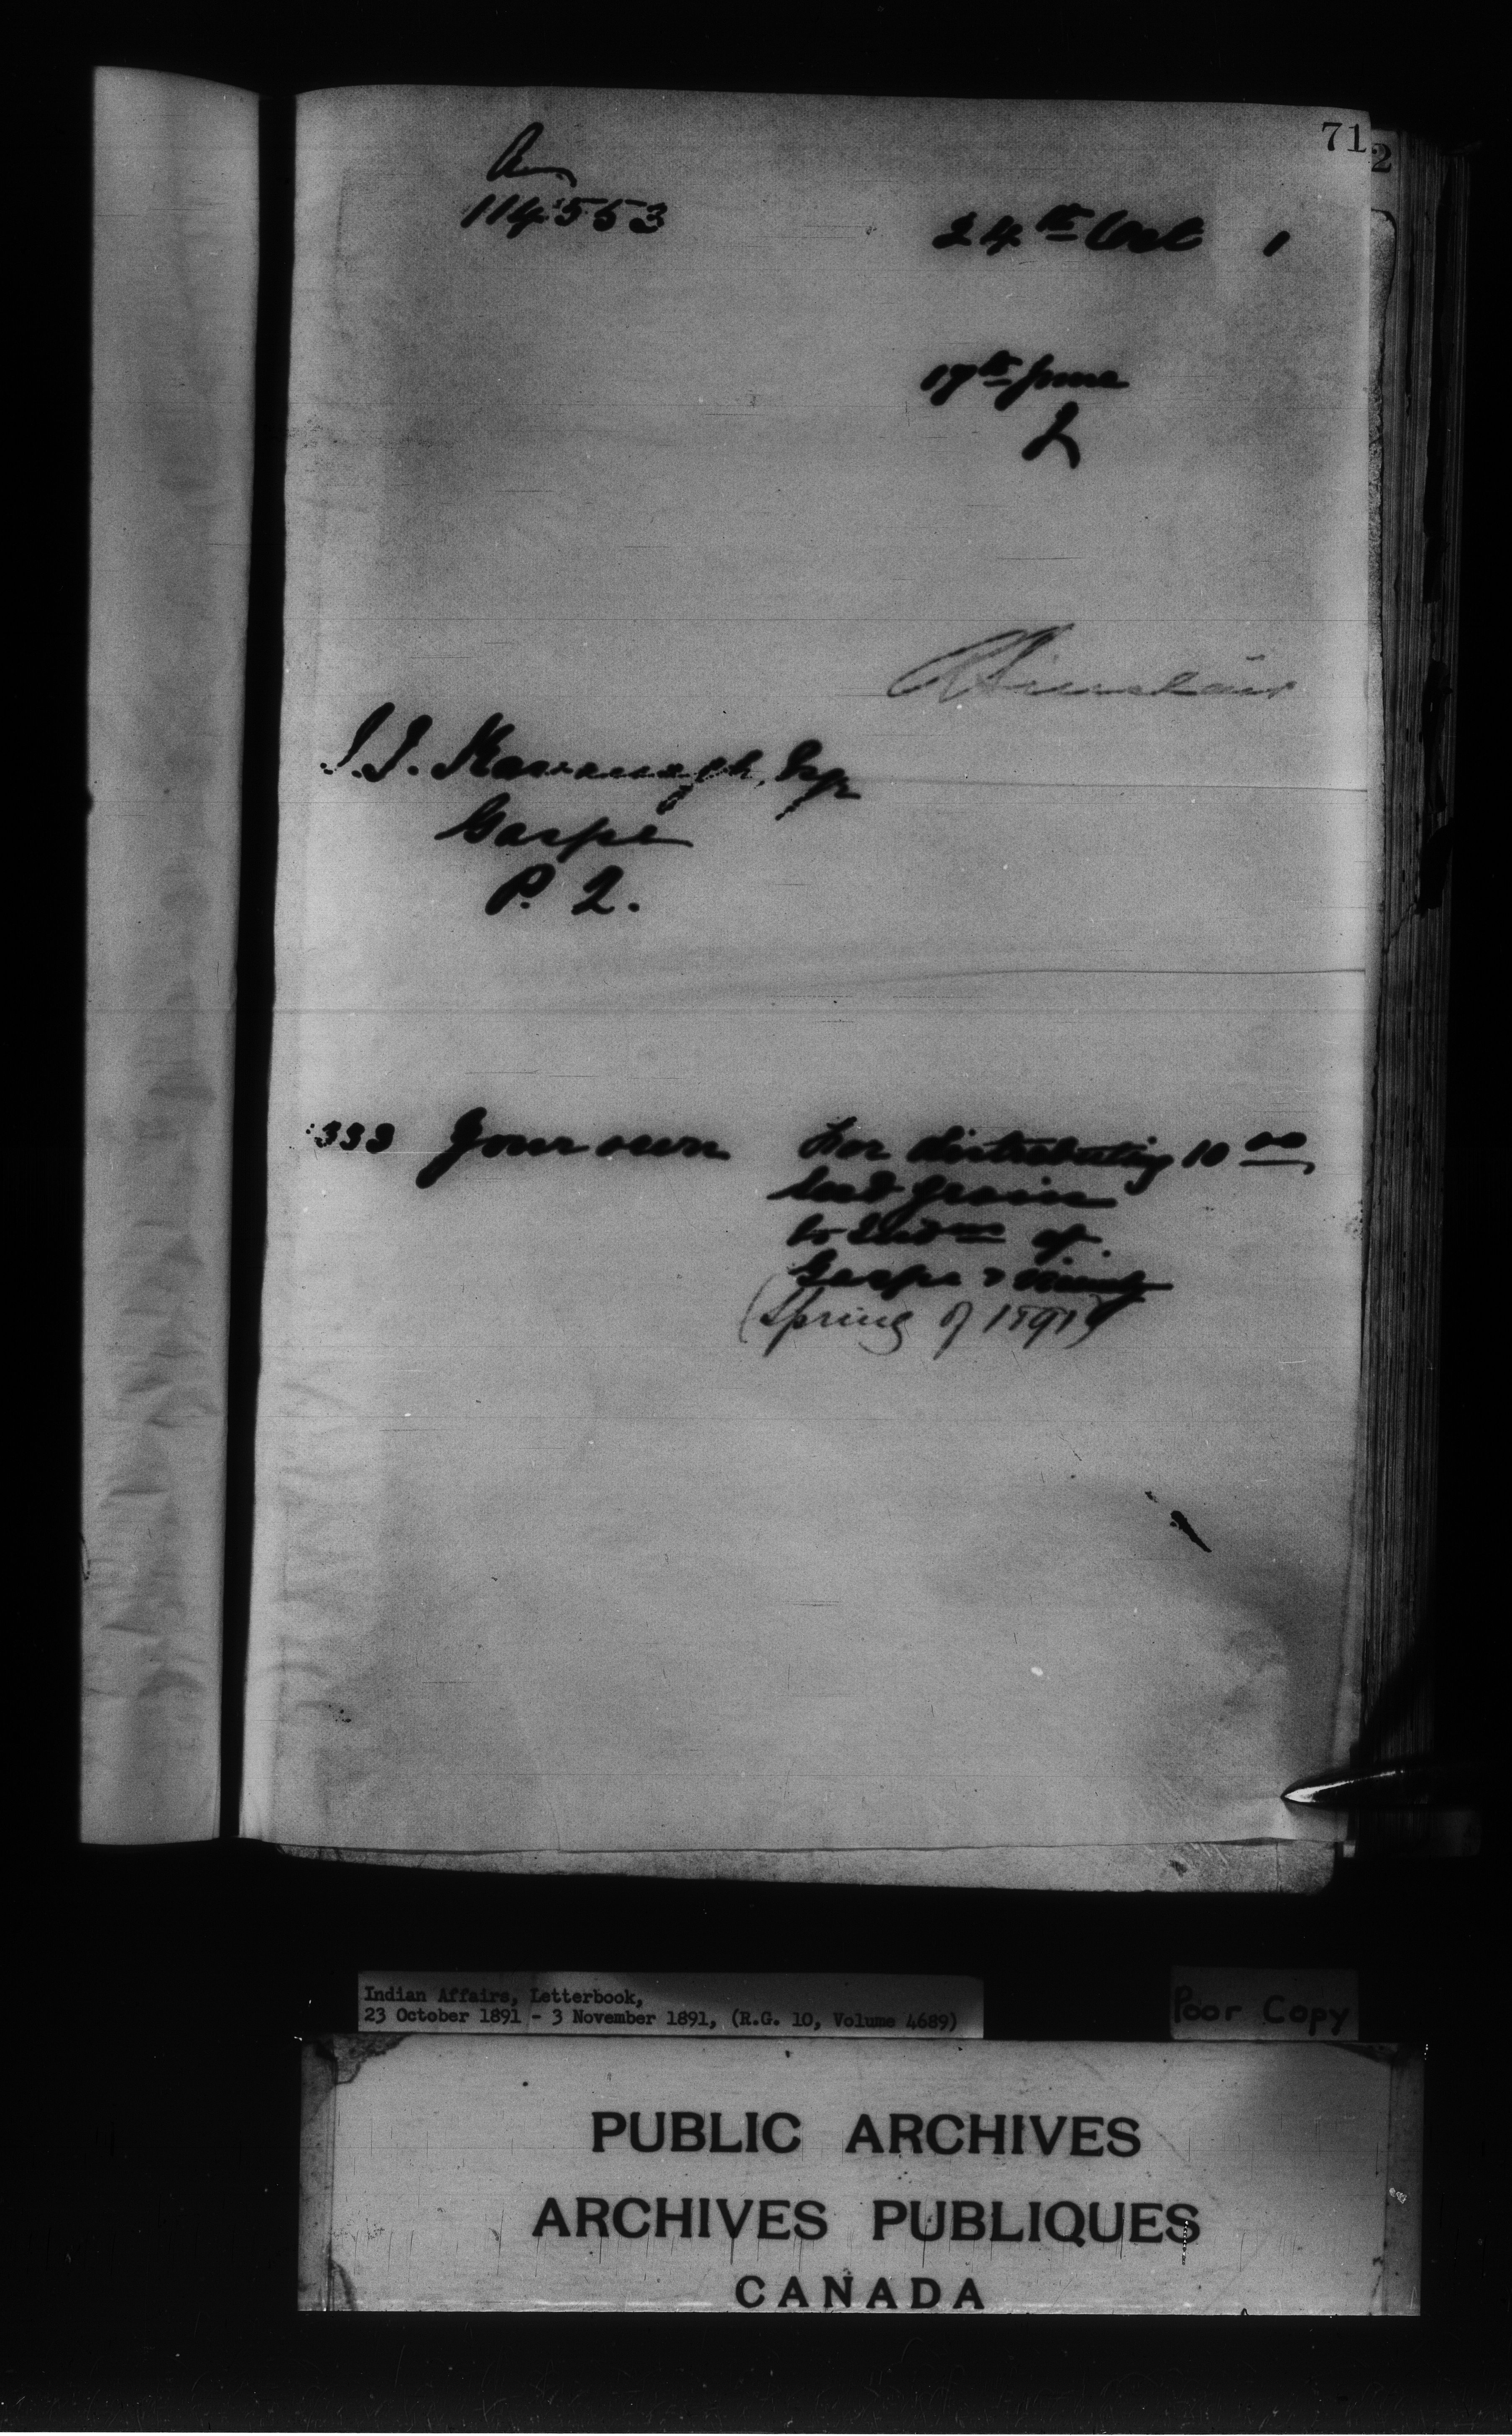 71
2
114553
24th Oct 1
17th June
2
R Sinclair
J.J. Kavanagh, Esq
Gaspe
P. Q.
333 Your own For distributing 10 00
seed grain
to Indns of
Gaspe & vicinity
(Spring of 1891)
Indian Affairs, Letterbook,
23 October 1891 - 3 November 1891, (R.G. 10, Volume 4689)
Poor Copy
PUBLIC ARCHIVES
ARCHIVES PUBLIQUES
CANADA